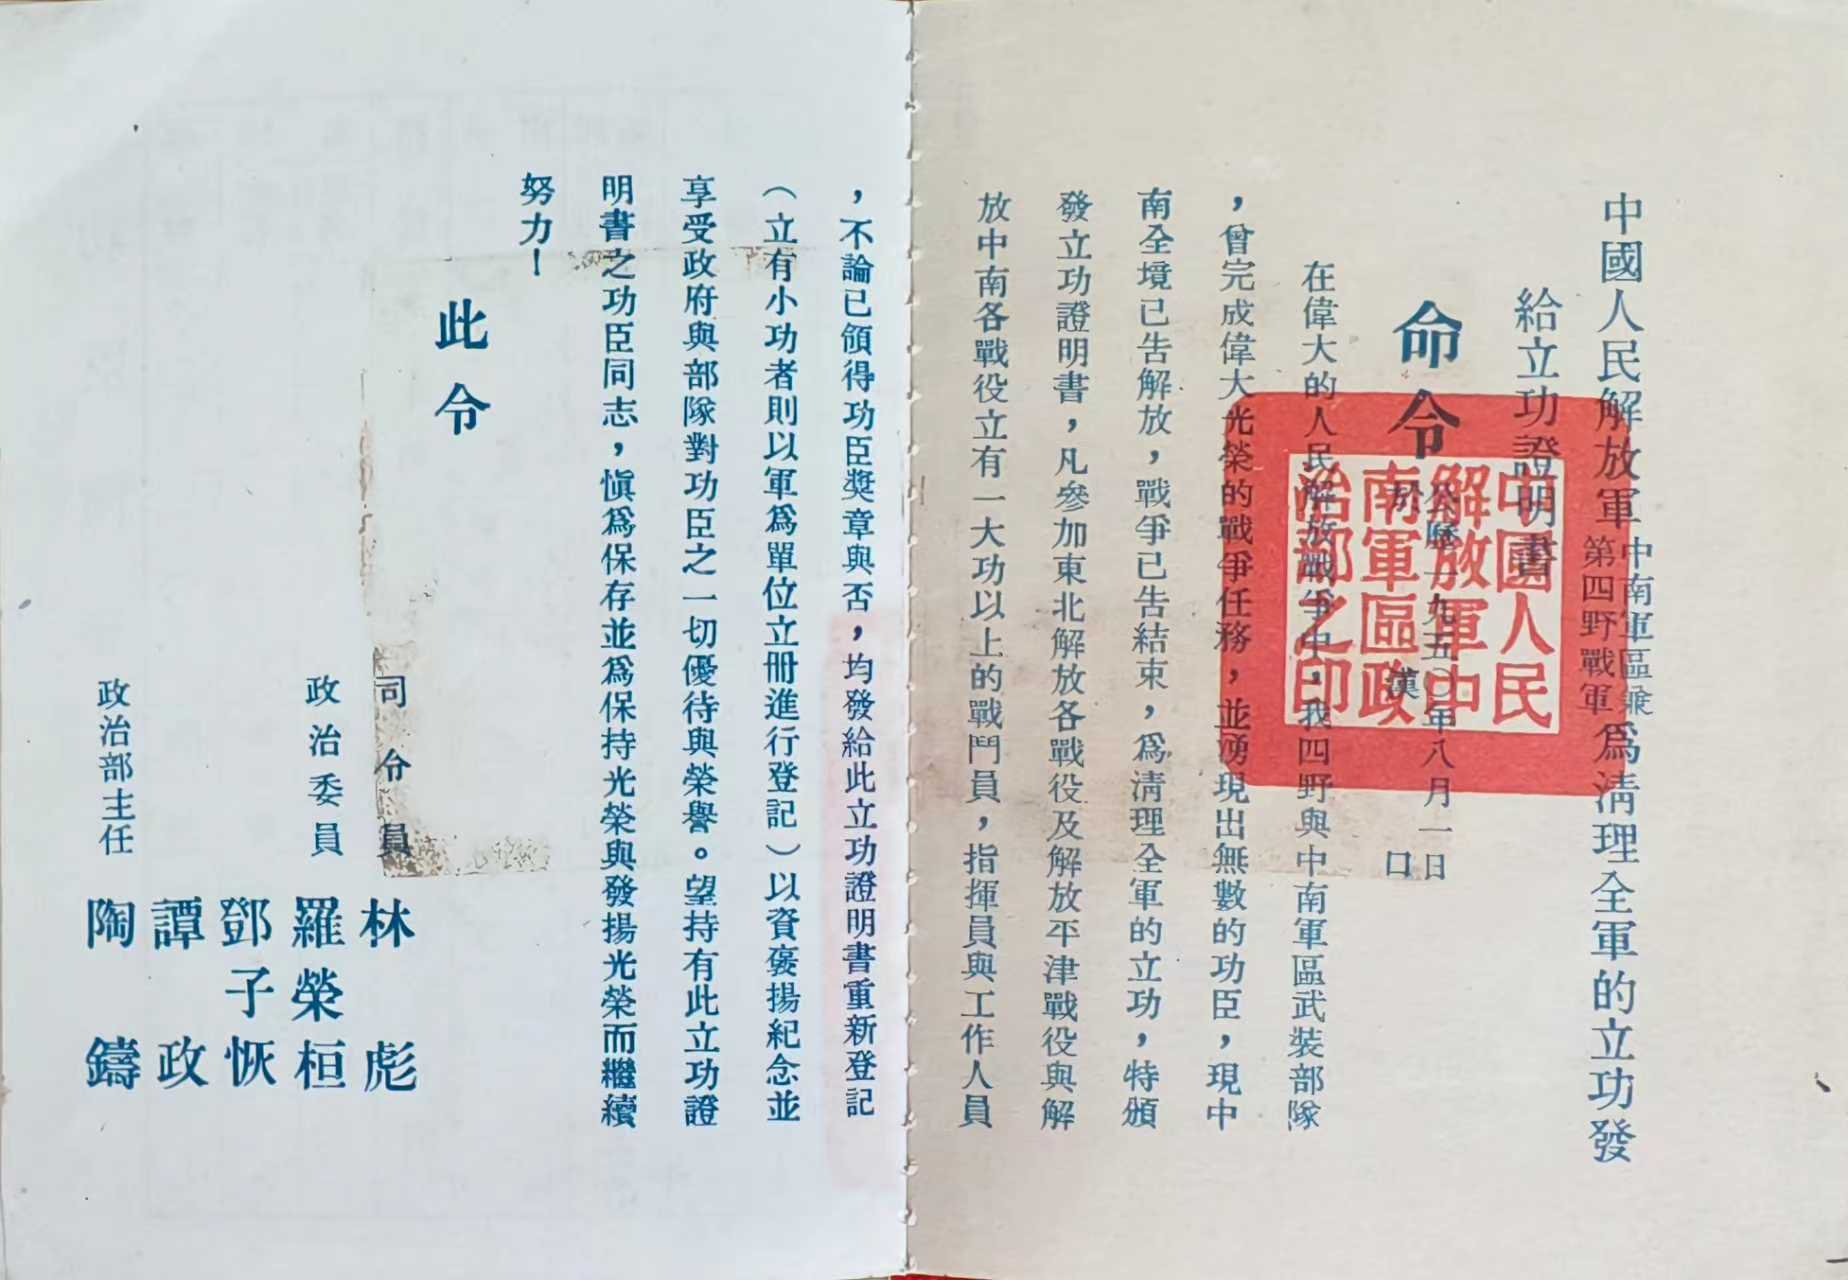 中國人民解放軍中南軍區兼第四野戰軍爲清理全軍的立功發
給立功證明書
命令
公曆一九五〇年八月一日
於漢口
在偉大的人民解放戰爭中，我四野與中南軍區武裝部隊
，曾完成偉大光榮的戰爭任務，並湧現出無數的功臣，現中
南全境已告解放，戰爭已告結束，爲清理全軍的立功，特頒
發立功證明書，凡參加東北解放各戰役及解放平津戰役與解
放中南各戰役立有一大功以上的戰鬥員，指揮員與工作人員
，不論已領得功臣獎章與否，均發給此立功證明書重新登記
（立有小功者則以軍爲單位立冊進行登記）以資褒揚紀念並
享受政府與部隊對功臣之一切優待與榮譽。望持有此立功證
明書之功臣同志，慎爲保存並爲保持光榮與發揚光榮而繼續
努力！
此令
司令員 林彪
政治委員 羅榮桓
鄧子恢
譚政
政治部主任 陶鑄
中國人民
解放軍中
南軍區政
治部之印